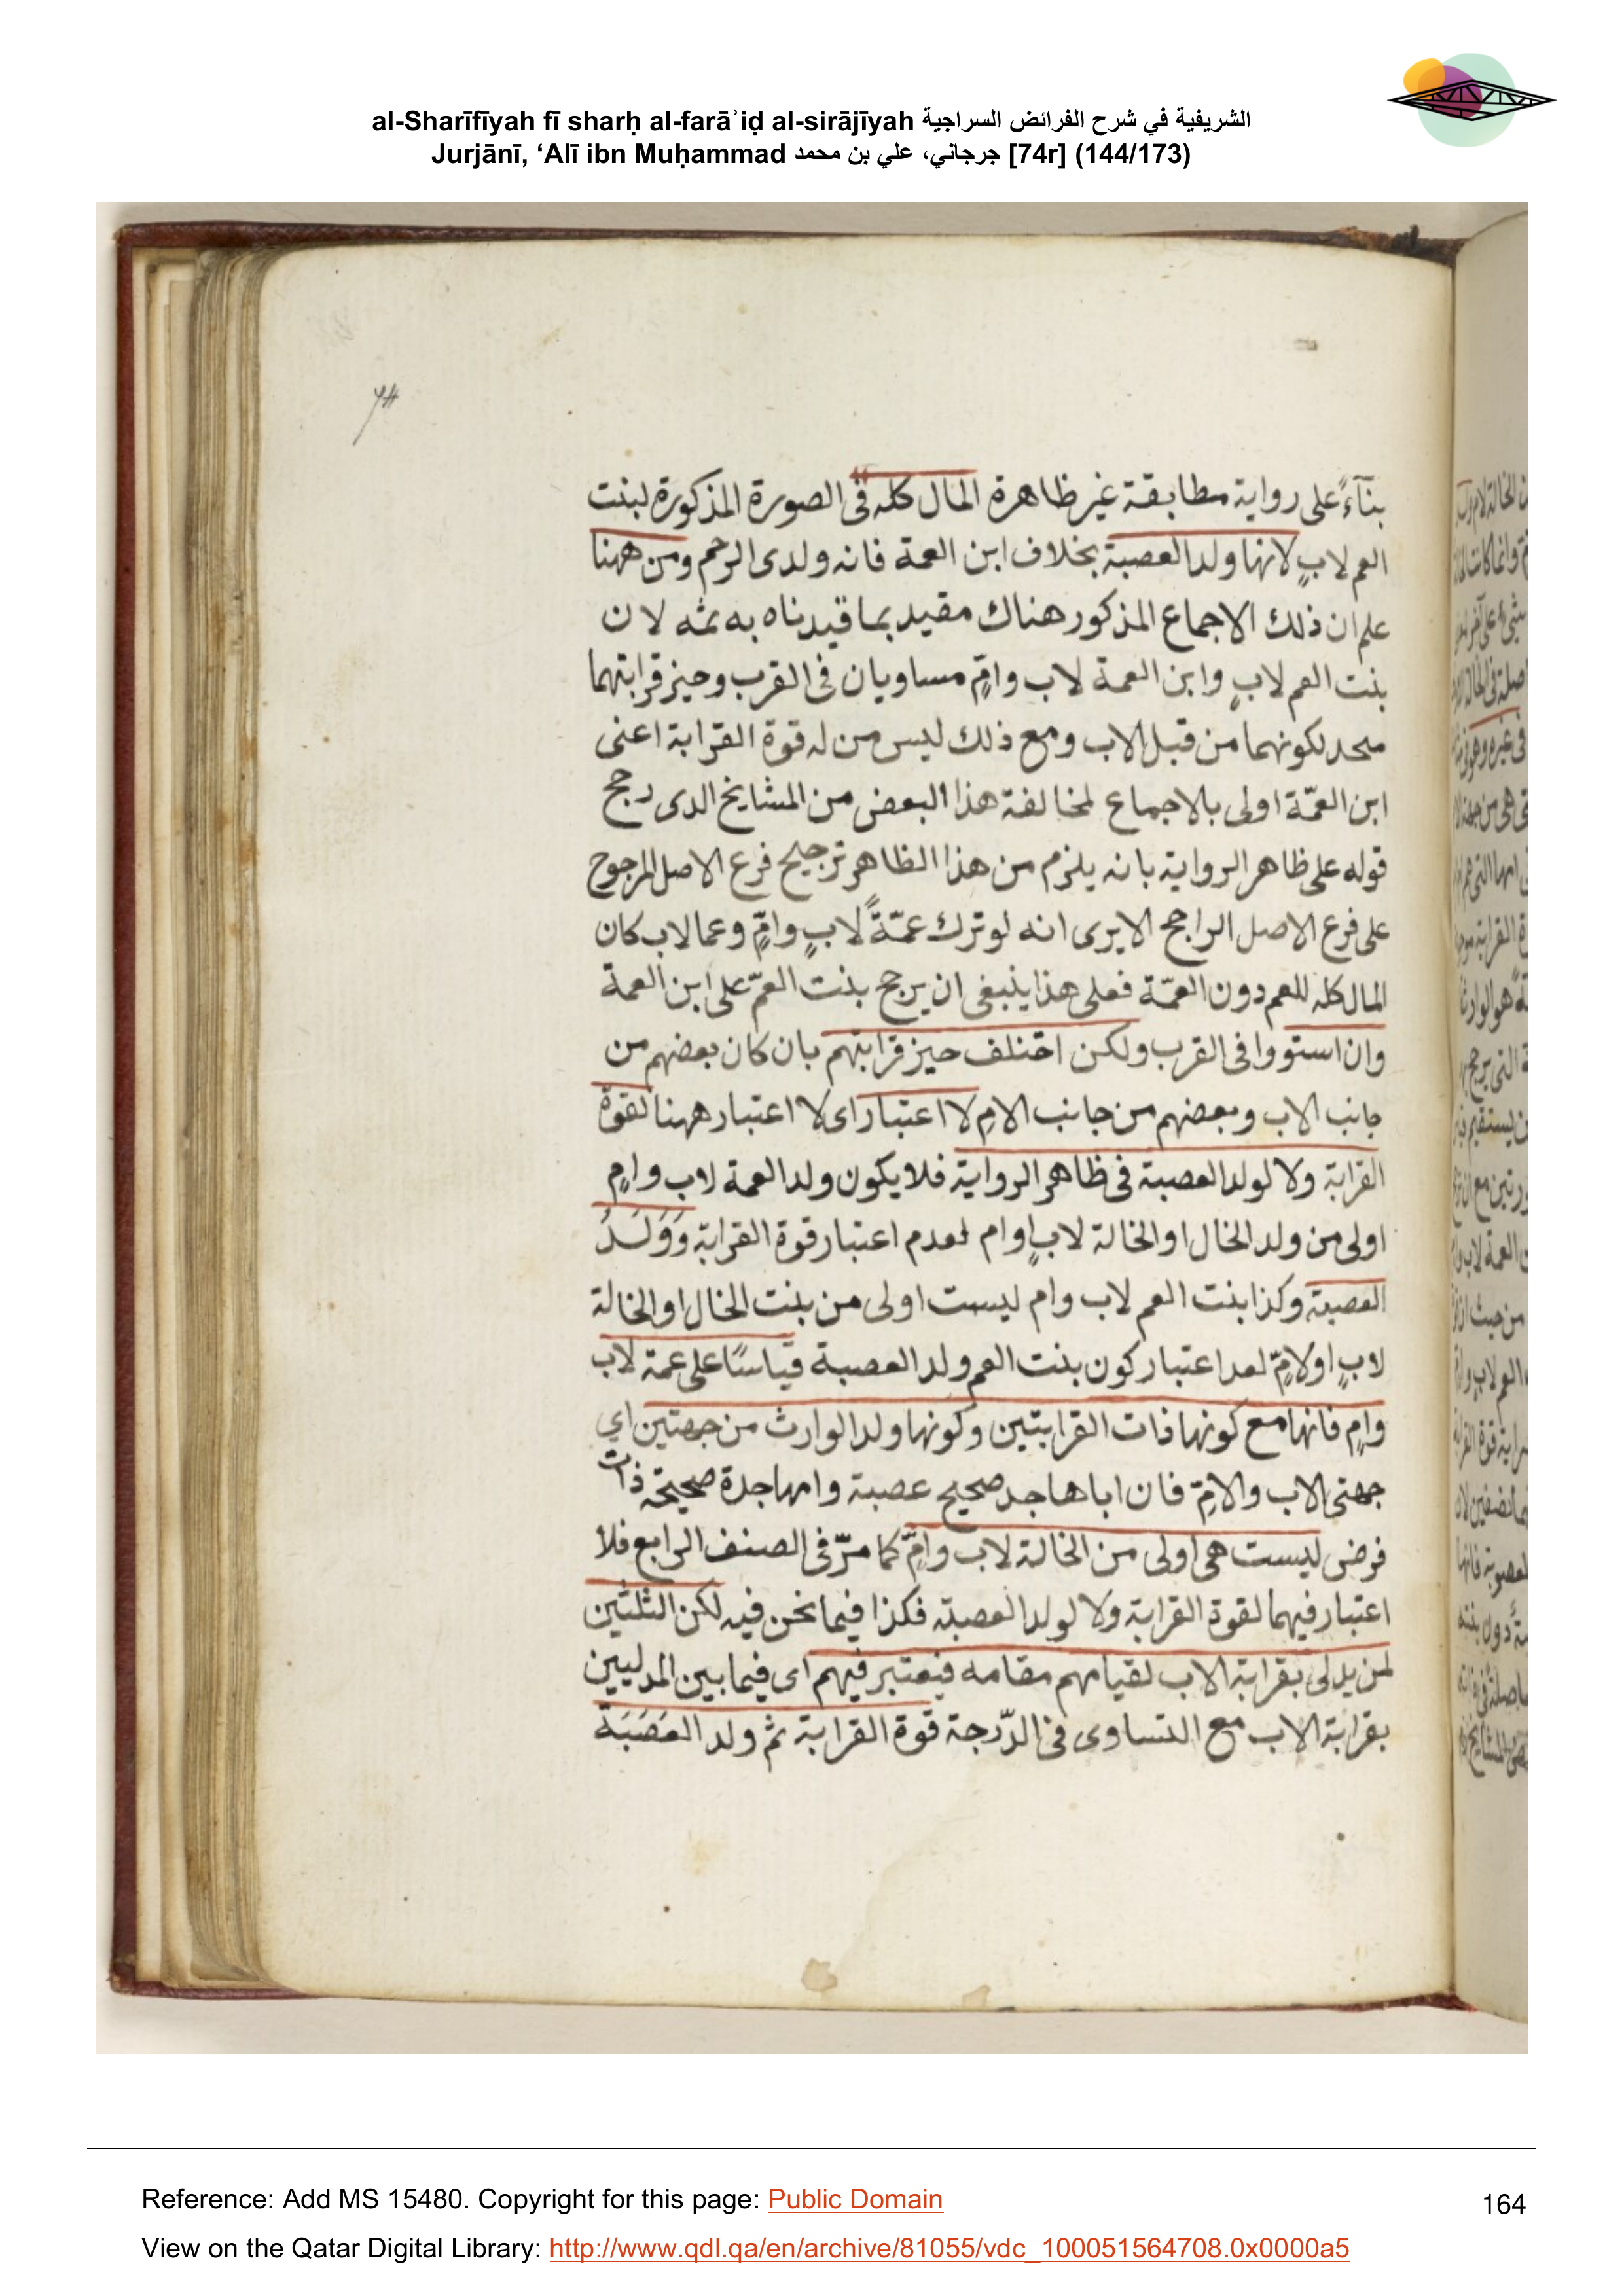 al-Sharīfīyah fī sharḥ al-farāʾiḍ al-sirājīyah الشريفية في شرح الفرائض السراجية
Jurjānī, ‘Alī ibn Muḥammad جرجاني، علي بن محمد [74r] (144/173)
74
بنآءً على رواية مطابقة غير ظاهرة المال كله فى الصورة المذكورة لبنت
العم لابٍ لانها ولد العصبة بخلاف ابن العمة فانه ولدى الرحم ومن ههنا
علم ان ذلك الاجماع المذكور هناك مقيد بما قيدناه به ثمه لان
بنت العم لابٍ وابن العمة لاب وامٍّ مساويان فى القرب وحيز قرابتهما
متحد لكونهما من قبل الاب ومع ذلك ليس من له قوة القرابة اعنى
ابن العمّة اولى بالاجماع لمخالفة هذا البعض من المشايخ الدى رجح
قوله على ظاهر الرواية بانه يلزم من هذا الظاهر ترجيح فرع الاصل المرجوح
على فرع الاصل الراجح الايرى انه لو ترك عمّةً لابٍ وامٍّ وعما لاب كان
المال كله للعم دون العمّة فعلى هذا ينبغى ان يرجح بنت العمّ على ابن العمة
وان استووا فى القرب ولكن اختلف حيز قرابتهم بان كان بعضهم من
جانب الاب وبعضهم من جانب الامِ لا اعتبار اى لا اعتبار ههنا لقوة
القرابة ولا لولد العصبة فى ظاهر الرواية فلا يكون ولد العمة لاب وامٍ
اولى من ولد الخال او الخالة لابٍ اوام لعدم اعتبار قوة القرابة وَوَلَدُ
العصبة وكذا بنت العم لاب وام ليست اولى من بنت الخال او الخالة
لابٍ اولامٍّ لعد اعتبار كون بنت العم ولد العصبة قياسًا على عمة لاب
وامٍ فانها مع كونها ذات القرابتين وكونها ولد الوارث من جهتين اي
جهتى الاب والامّ فان اباها جد صحيح عصبة وامها جدة صحيحة ذات
فرض ليست هى اولى من الخالة لاب وامٍّ كما مرّ فى الصنف الرابع فلا
اعتبار فيهما لقوة القرابة ولا لولد العصبة فكذا فيما نحن فيه لكن الثلثين
لمن يدلى بقرابة الاب لقيامهم مقامه فيعتبر فيهم اى فيما بين المدليين
بقرابة الاب مع التساوى فى الدّرجة قوة القرابة ثم ولد العَصَبَة
Reference: Add MS 15480. Copyright for this page: Public Domain
164
View on the Qatar Digital Library: http://www.qdl.qa/en/archive/81055/vdc_100051564708.0x0000a5